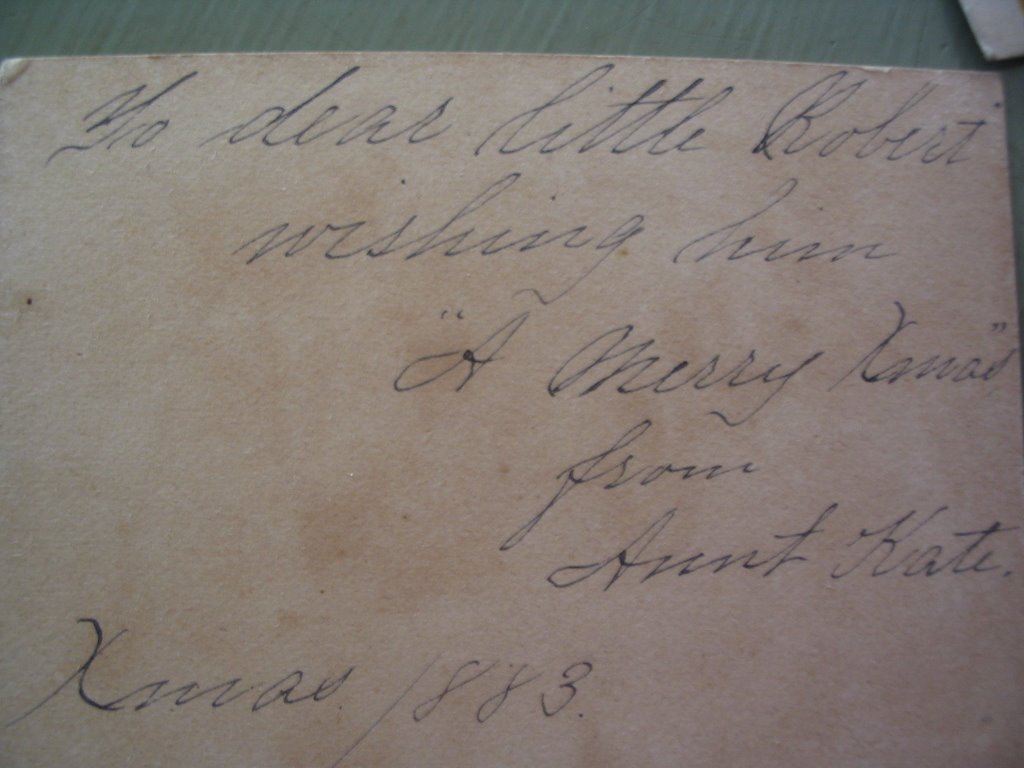 To dear little Robert
wishing him
"A Merry Xmas"
from
Aunt Kate.
Xmas. 1883.